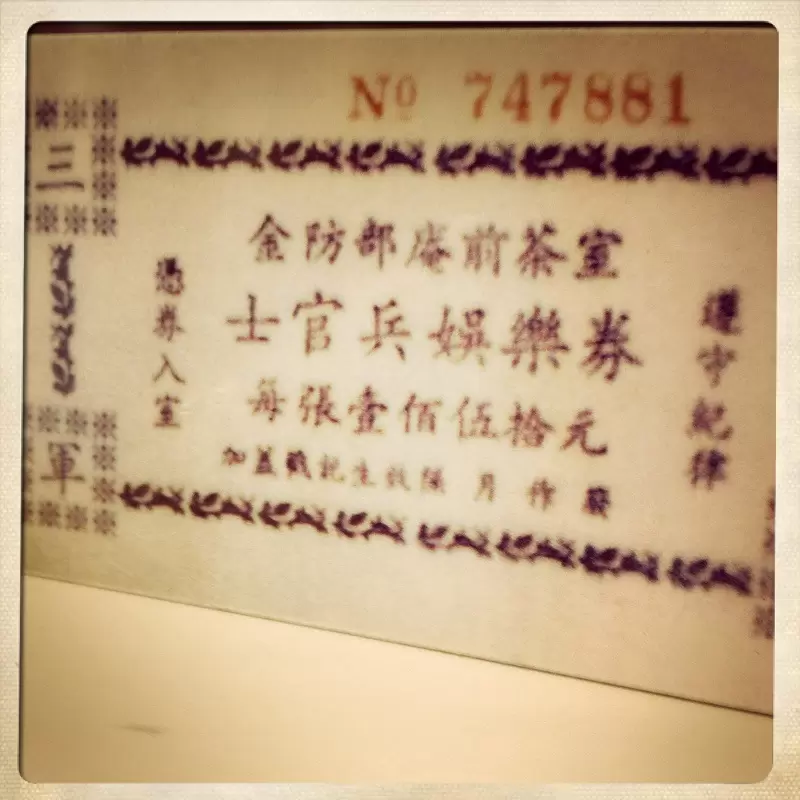 No 747881
三軍
金防部庵前茶室
士官兵娛樂券
每張壹佰伍拾元
加蓋戳記生效隔月作廢
憑券入室
遵守紀律